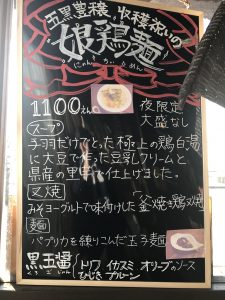 五黒豊穣。収穫祝いの
娘鶏麺
にゃん ちい めん
1100えん
夜限定
大盛なし
スープ
子羽だけでとった極上の鶏白湯
に大豆で作った豆乳クリームと
県産の里芋で仕上げました。
叉焼
みそヨーグルトで味付けした釜焼き鶏叉焼
麺
パプリカを練りこんだ玉子麺
黒玉醤
トリュフ イカスミ オリーブのソース
ひじき プルーン